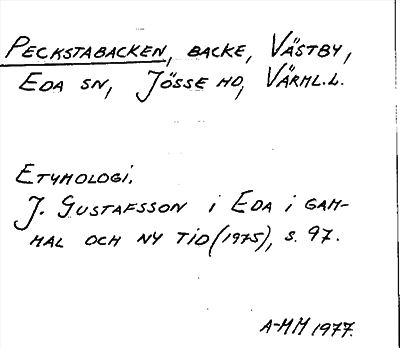 PECKSTABACKEN, BACKE, VÄSTBY,
EDA SN, JÖSSE HD, VÄRML.L.
ETYMOLOGI.
J. GUSTAFSSON I EDA I GAM-
MAL OCH NY TID (1975), S. 97.
A-MM 1977.